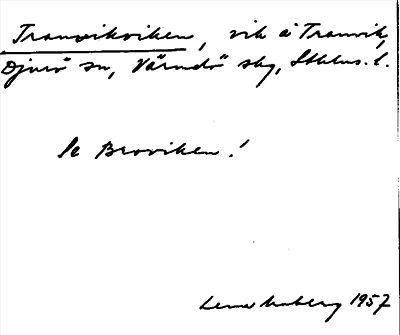 Tranvikviken, vik å Tranvik,
Djurö sn, Värmdö skg, Sthlms. l.
Se Broviken!
Lena Moberg 1957